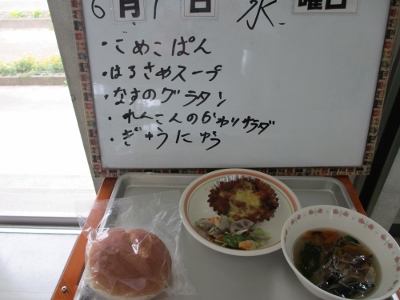 6月1日 水曜日
・こめこぱん
・はるさめスープ
・なすのグラタン
・れんこんのかわりサラダ
・ぎゅうにゅう